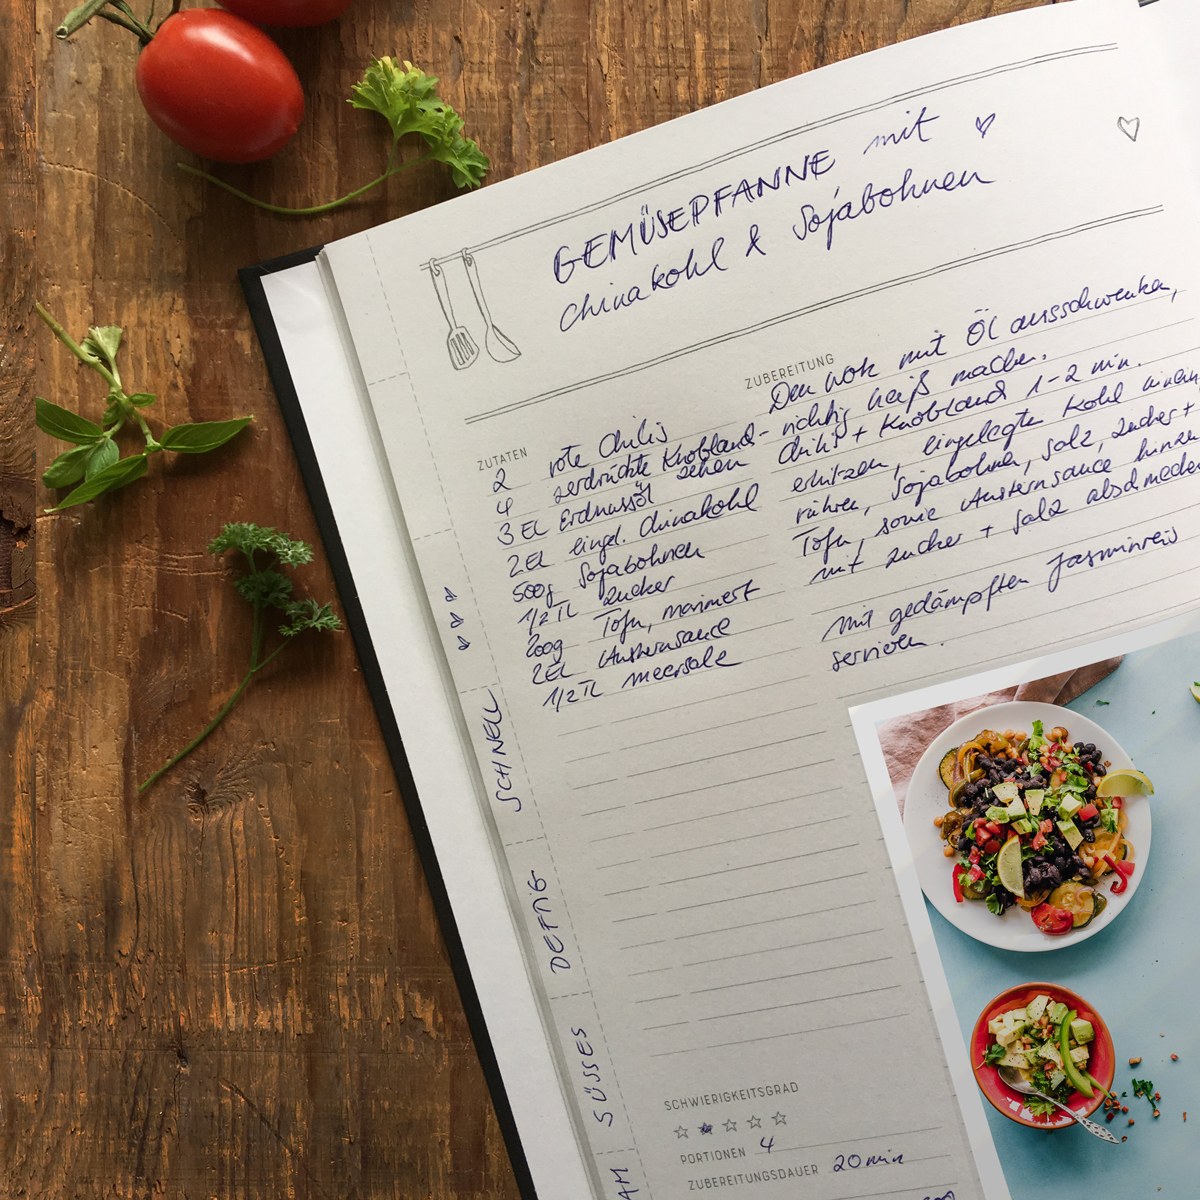 GEMÜSEPFANNE mit
Chinakohl & Sojabohnen
ZUTATEN
2 rote Chilis
4 zerdrückte Knobland-
zehen
3 EL Erdnussöl
2 EL eingel. Chinakohl
500g Sojabohnen
1/2 TL Zucker
200g Tofu, mariniert
2 EL Austernsauce
1/2 TL Meersalz
ZUBEREITUNG
Den Wok mit Öl ausschwenken,
richtig heiß machen.
Chili + Knobland 1-2 min.
erhitzen, eingelegte Kohl hinein
rühren, Sojabohnen, Salz, Zucker +
Tofu, sowie Austernsauce hinzu
mit Zucker + Salz abschmecken
Mit gedämpften Jasminreis
servieren.
SCHNELL
DEFTIG
SÜSSES
AM
SCHWIERIGKEITSGRAD
PORTIONEN 4
ZUBEREITUNGSDAUER 20 min